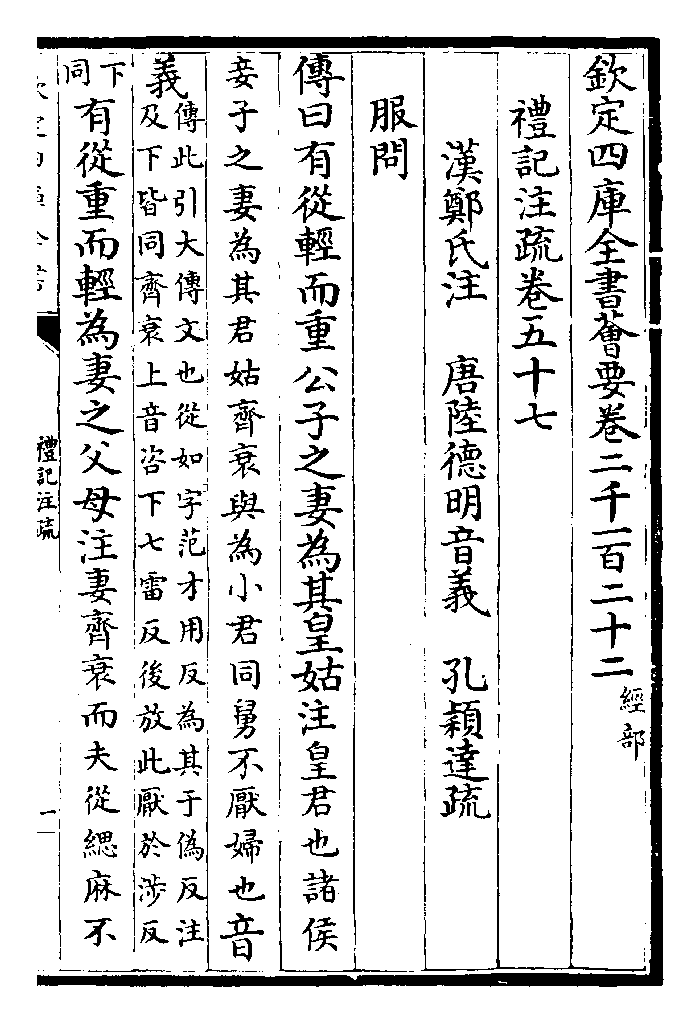 欽定四庫全書薈要卷二千一百二十二經部
禮記注疏卷五十七
漢鄭氏注 唐陸德明音義 孔穎達疏
服問
傳曰有從輕而重公子之妻為其皇姑注皇君也諸侯
妾子之妻為其君姑齊衰與為小君同舅不厭婦也音
義傳此引大傳文也從如字范才用反為其于偽反注
及下皆同齊衰上音咨下七雷反後放此厭於涉反
下
同有從重而輕為妻之父母注妻齊衰而夫從緦麻不
禮記注疏
一